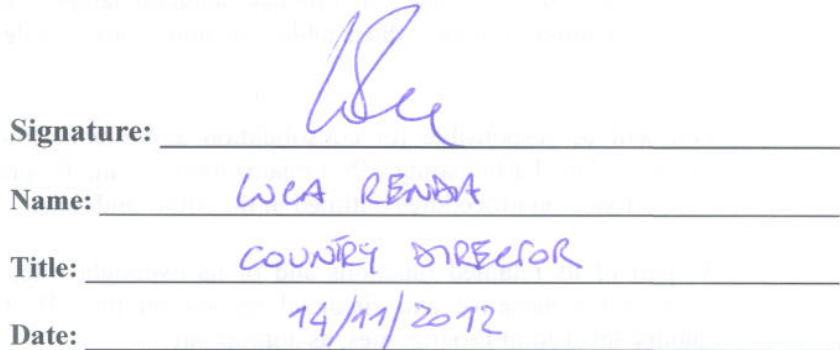 Signature:
Name: LUCA RENDA
Title: COUNTRY DIRECTOR
Date: 14/11/2012